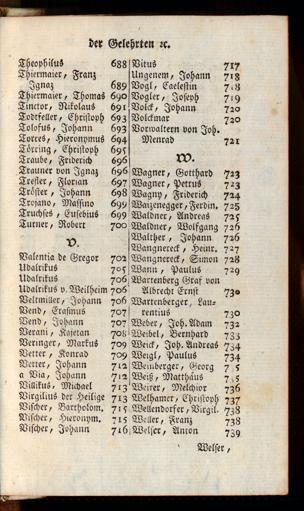 der Gelehrten ꝛc.
Theophilus 688
Thiermaier, Franz
Ignaz 689
Thiermaier, Thomas 690
Tinctor, Nikolaus 691
Todtfeller, Christoph 693
Tolosus, Johann 693
Torres, Hieronymus 694
Töring, Christoph 695
Traube, Friderich 695
Trauner von Ignaz 696
Trester, Florian 697
Tröster, Johann 698
Trojano, Massino 699
Truchses, Eusebius 699
Turner, Robert 700
V.
Valentia de Gregor 702
Udalrikus 705
Udalrikus 706
Udalrikus v. Weilheim 706
Veltmiller, Johann 706
Vend, Erasmus 707
Vend, Johann 707
Verani, Kajetan 708
Veringer, Markus 709
Vetter, Konrad 709
Vetter, Johann 712
a Via, Johann 712
Villikus, Michael 713
Virgilius der Heilige 713
Vischer, Bartholom. 715
Vischer, Hieronym. 715
Vischer, Johann 716
Vitus 717
Ungenem, Johann 718
Vogl, Caelestin 718
Vogler, Joseph 719
Volck, Johann 720
Volckmar 720
Vorwaltern von Joh.
Menrad 721
W.
Wagner, Gotthard 723
Wagner, Petrus 723
Wagny, Friderich 724
Waizenegger, Ferdin. 725
Waldner, Andreas 725
Waldner, Wolfgang 726
Walther, Johann 726
Wangnereck, Heinr. 727
Wangnereck, Simon 728
Wann, Paulus 729
Wartenberg Graf von
Albrecht Ernst 730
Wartenberger, Lau-
rentius 730
Weber, Joh. Adam 732
Weibel, Bernhard 733
Weick, Joh. Andreas 734
Weigl, Paulus 734
Weinberger, Georg 735
Weiß, Matthäus 735
Weixer, Melchior 736
Welhamer, Christoph 737
Wellendorfer, Virgil. 738
Weller, Franz 738
Welser, Anton 739
Welser,